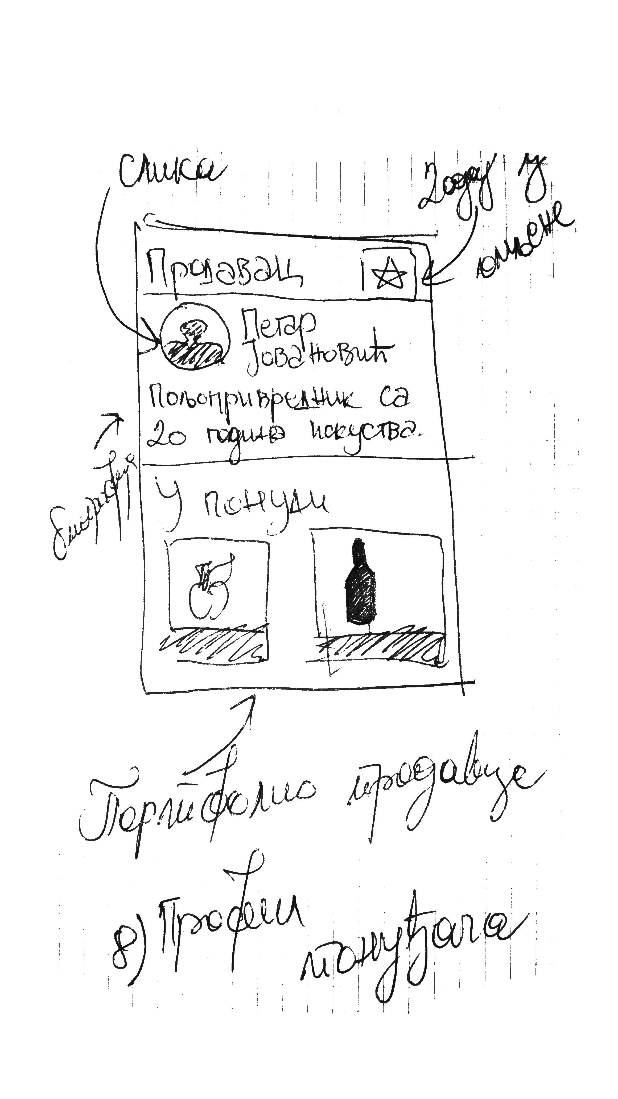 слика
Додај у
омиљене
Продавац
Петар
Јовановић
Пољопривредник са
20 година искуства.
биографија
У понуди
Портфолио продавца
8) Профил
понуђача